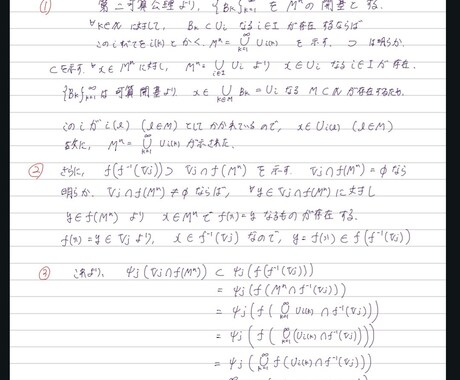 ① 第二可算公理より, {Bk}_{k=1}^∞ を M^n の開基とする.
∀k∈ℕ に対して, Bk ⊂ Ui なる i∈I が存在するならば
この i すべてを i(k) とかく. M^n = ⋃_{k=1}^∞ Ui(k) を示す. ⊃ は明らか.
⊂を示す. ∀x∈M^n に対し, M^n = ⋃_{i∈I} Ui より x∈Ui なる i∈I が存在.
{Bk}_{k=1}^∞ は可算開基より x∈ ⋃_{k∈M} Bk = Ui なる M⊂ℕ が存在するため,
この i が i(l) (l∈M) としてかかれているので, x∈Ui(l) (l∈M)
故に, M^n = ⋃_{k=1}^∞ Ui(k) が示された.
② さらに, f(f⁻¹(Vj)) ⊃ Vj∩f(M^n) を示す. Vj∩f(M^n) = φ なら
明らか. Vj∩f(M^n) ≠ φ ならば, ∀y∈Vj∩f(M^n) に対し
y∈f(M^n) より x∈M^n で f(x)=y なるものが存在する.
f(x)=y∈Vj より, x∈f⁻¹(Vj) なので, y=f(x)∈f(f⁻¹(Vj))
③ これより, ψj(Vj∩f(M^n)) ⊂ ψj(f(f⁻¹(Vj)))
= ψj(f(M^n∩f⁻¹(Vj)))
= ψj(f(⋃_{k=1}^∞ Ui(k)∩f⁻¹(Vj)))
= ψj(f(⋃_{k=1}^∞ (Ui(k)∩f⁻¹(Vj))))
= ψj(⋃_{k=1}^∞ f(Ui(k)∩f⁻¹(Vj)))